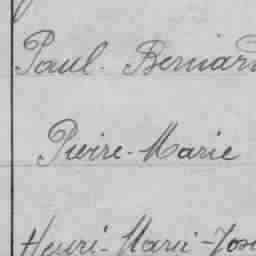 Paul. Bernard
Pierre-Marie
Henri-Marie-Jose